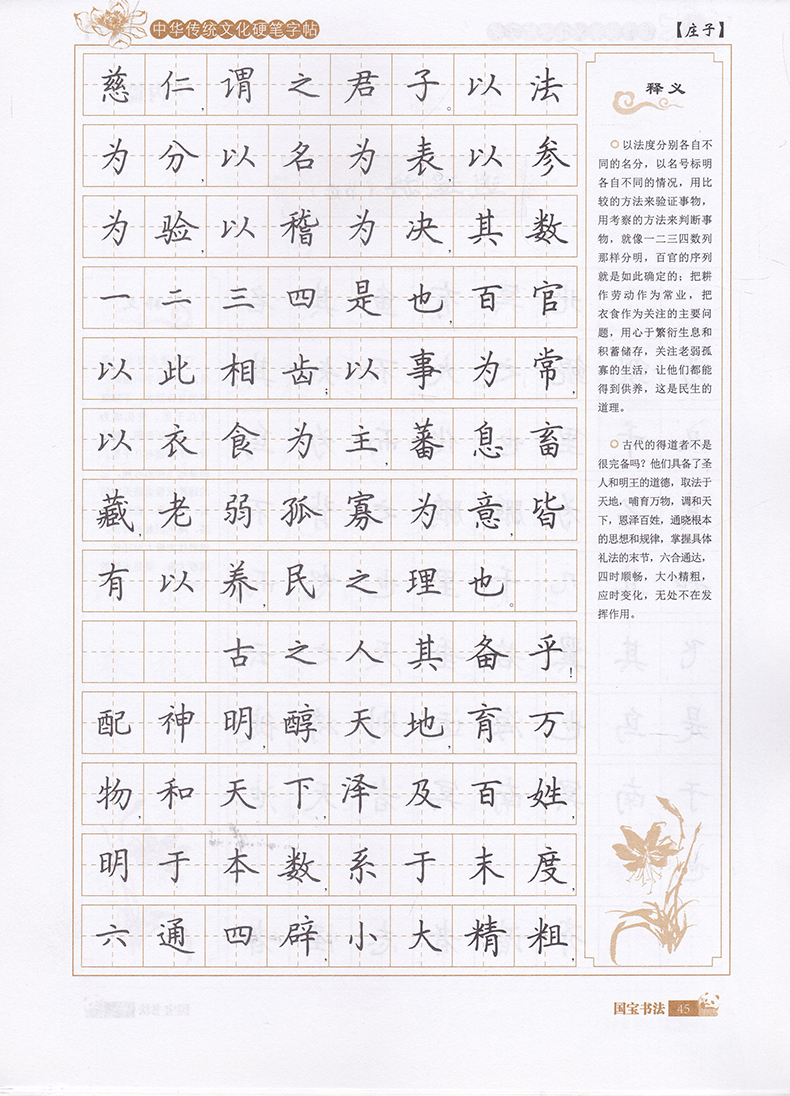 中华传统文化硬笔字帖
【庄子】
慈仁，谓之君子。以法
为分，以名为表，以参
为验，以稽为决，其数
一二三四是也，百官
以此相齿；以事为常，
以衣食为主，蕃息畜
藏，老弱孤寡为意，皆
有以养，民之理也。
古之人其备乎！
配神明，醇天地，育万
物，和天下，泽及百姓，
明于本数，系于末度，
六通四辟，小大精粗，
释义
以法度分别各自不
同的名分，以名号标明
各自不同的情况，用比
较的方法来验证事物，
用考察的方法来判断事
物，就像一二三四数列
那样分明，百官的序列
就是如此确定的；把耕
作劳动作为常业，把
衣食作为关注的主要问
题，用心于繁衍生息和
积蓄储存，关注老弱孤
寡的生活，让他们都能
得到供养，这是民生的
道理。
古代的得道者不是
很完备吗？他们具备了圣
人和明王的道德，取法于
天地，哺育万物，调和天
下，恩泽百姓，通晓根本
的思想和规律，掌握具体
礼法的末节，六合通达，
四时顺畅，大小精粗，
应时变化，无处不在发
挥作用。
国宝书法 45